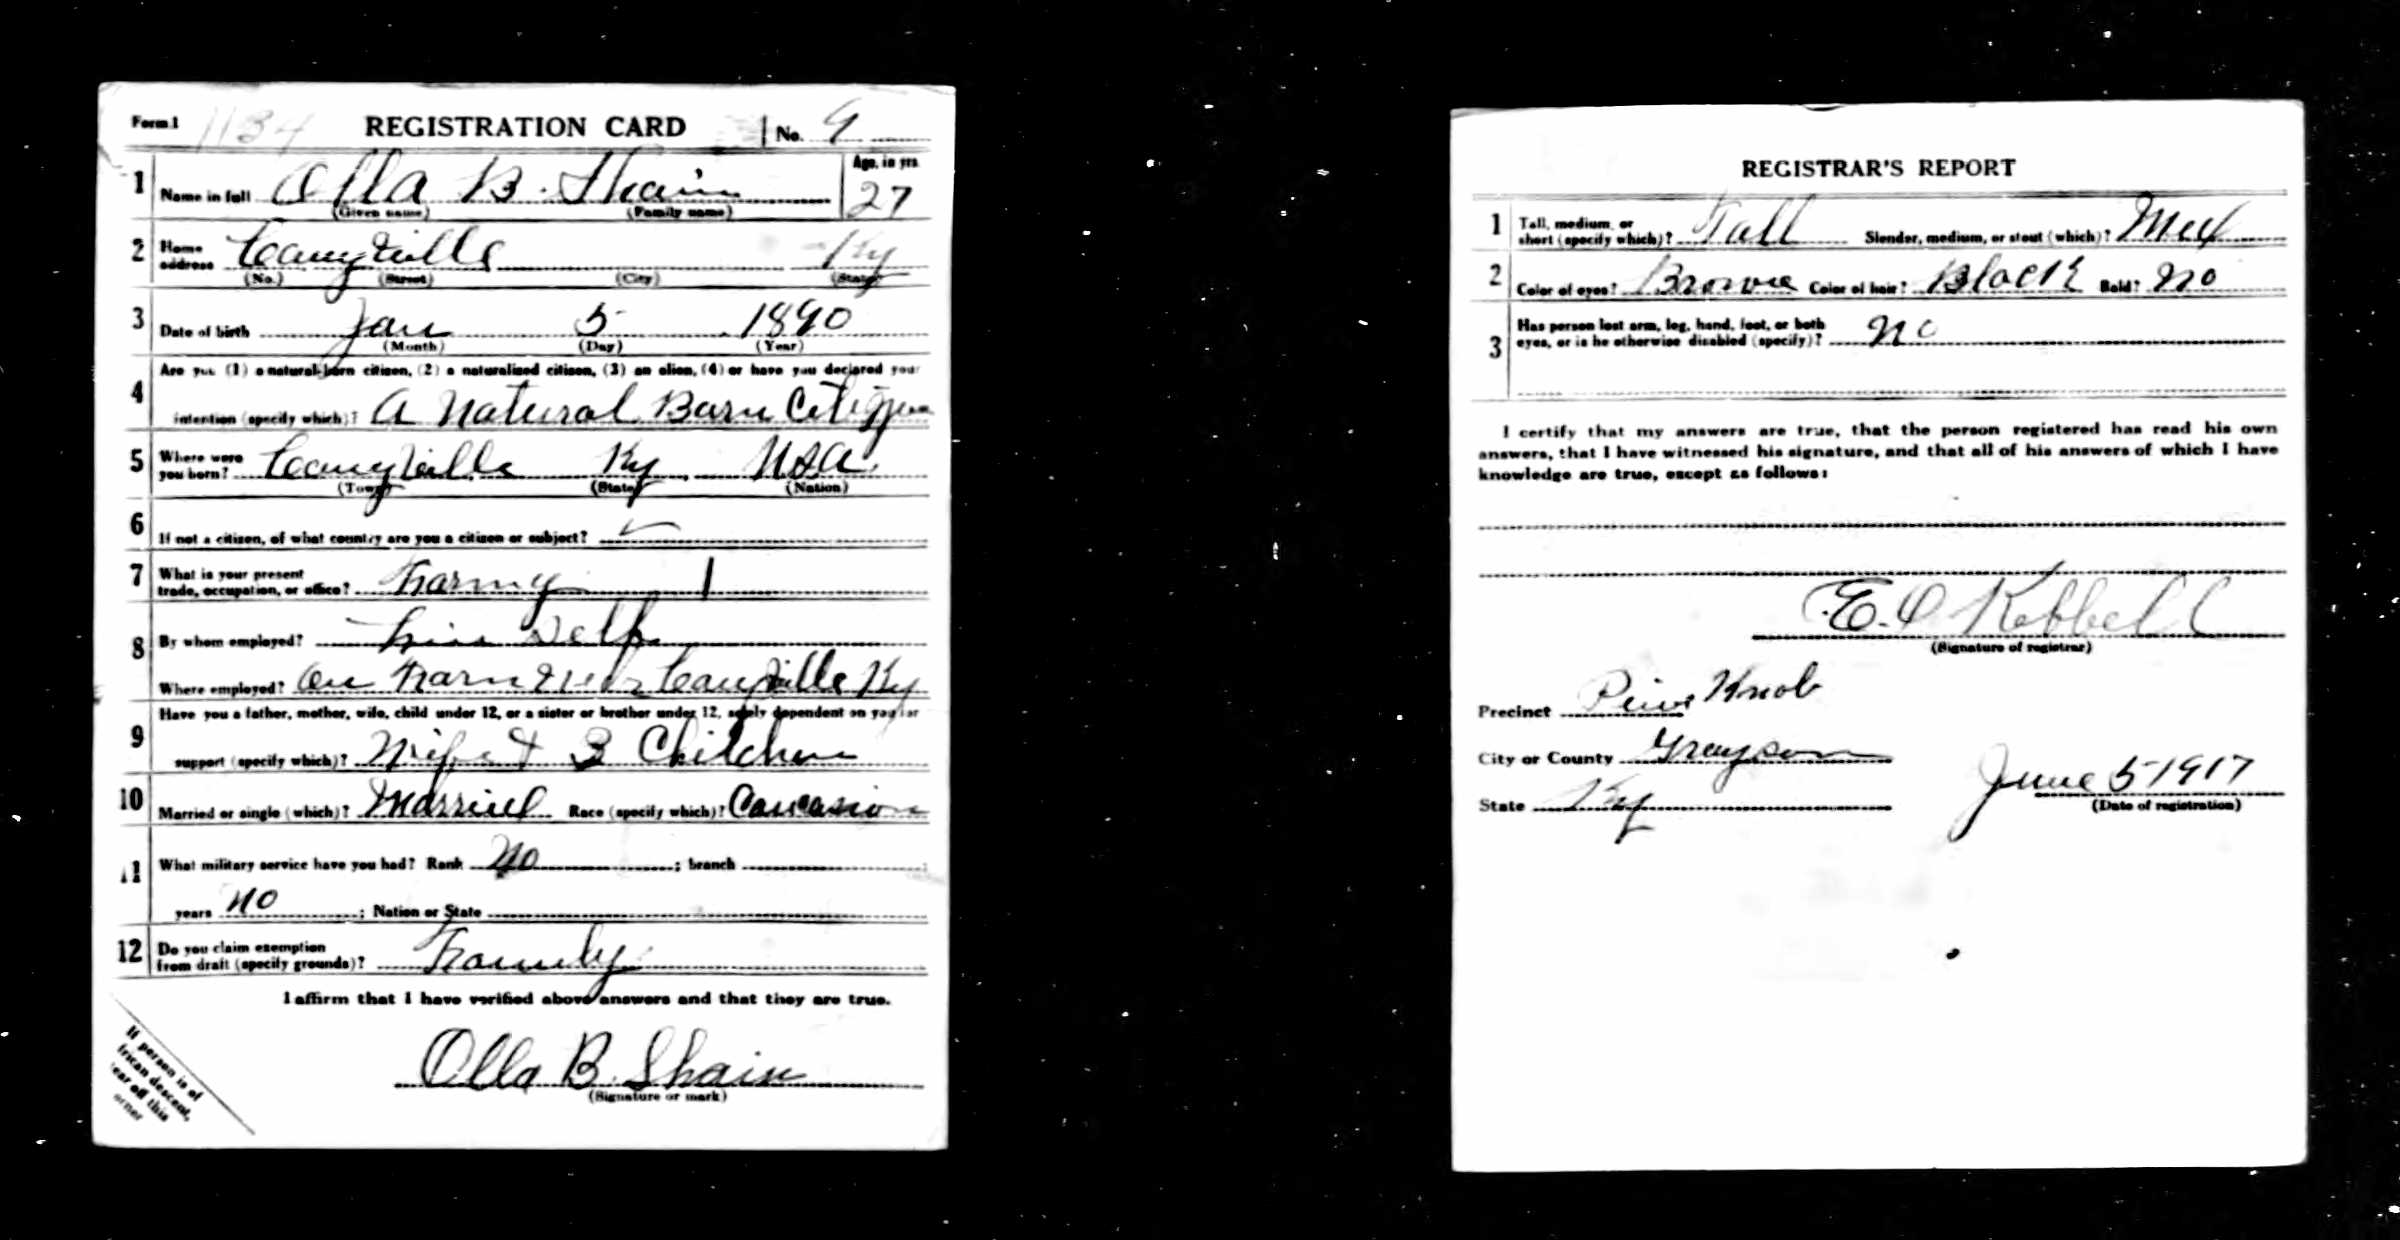 Form 1 1134 REGISTRATION CARD No. 9
1 Name in full Olla B. Shain Age, in yrs. 27
(Given name) (Family name)
2 Home address Caneyville Ky
(No.) (Street) (City) (State)
3 Date of birth Jan 5 1890
(Month) (Day) (Year)
4 Are you (1) a natural-born citizen, (2) a naturalized citizen, (3) an alien, (4) or have you declared your
intention (specify which)? A Natural Born Citizen
5 Where were you born? Caneyville Ky. USA
(Town) (State) (Nation)
6 If not a citizen, of what country are you a citizen or subject?
7 What is your present trade, occupation, or office? Farmy
8 By whom employed? his Self
Where employed? On Farm Near Caneyville Ky
9 Have you a father, mother, wife, child under 12, or a sister or brother under 12, solely dependent on you for
support (specify which)? Wife & 3 Children
10 Married or single (which)? Married Race (specify which)? Caucasion
11 What military service have you had? Rank No ; branch ;
years No ; Nation or State
12 Do you claim exemption from draft (specify grounds)? Family
I affirm that I have verified above answers and that they are true.
Olla B. Shain
(Signature or mark)
If person is of
frican descent,
ear off this
orner
REGISTRAR'S REPORT
1 Tall, medium, or short (specify which)? Tall Slender, medium, or stout (which)? Med
2 Color of eyes? Brown Color of hair? Black Bald? No
3 Has person lost arm, leg, hand, foot, or both eyes, or is he otherwise disabled (specify)? No
I certify that my answers are true, that the person registered has read his own
answers, that I have witnessed his signature, and that all of his answers of which I have
knowledge are true, except as follows:
E. O Kebbell
(Signature of registrar)
Precinct Pine Knob
City or County Grayson
State Ky
June 5 1917
(Date of registration)